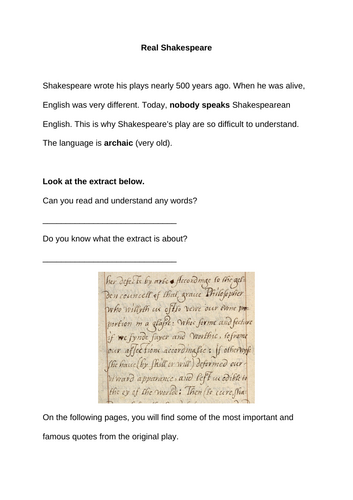 Real Shakespeare
Shakespeare wrote his plays nearly 500 years ago. When he was alive,
English was very different. Today, nobody speaks Shakespearean
English. This is why Shakespeare's play are so difficult to understand.
The language is archaic (very old).
Look at the extract below.
Can you read and understand any words?
Do you know what the extract is about?
her defects by arte. Accordinge to the gol-
den councell of that grave Philosopher
who willeth us ofte to veive our owne pro
portion in a glasse. Whose forme and feature
if we fynde fayer and
our affections accordinglie: if otherwyse
she have (by skill or will) deformed our
outward appearance and left us odible to
the ey of the world: Then to
On the following pages, you will find some of the most important and
famous quotes from the original play.